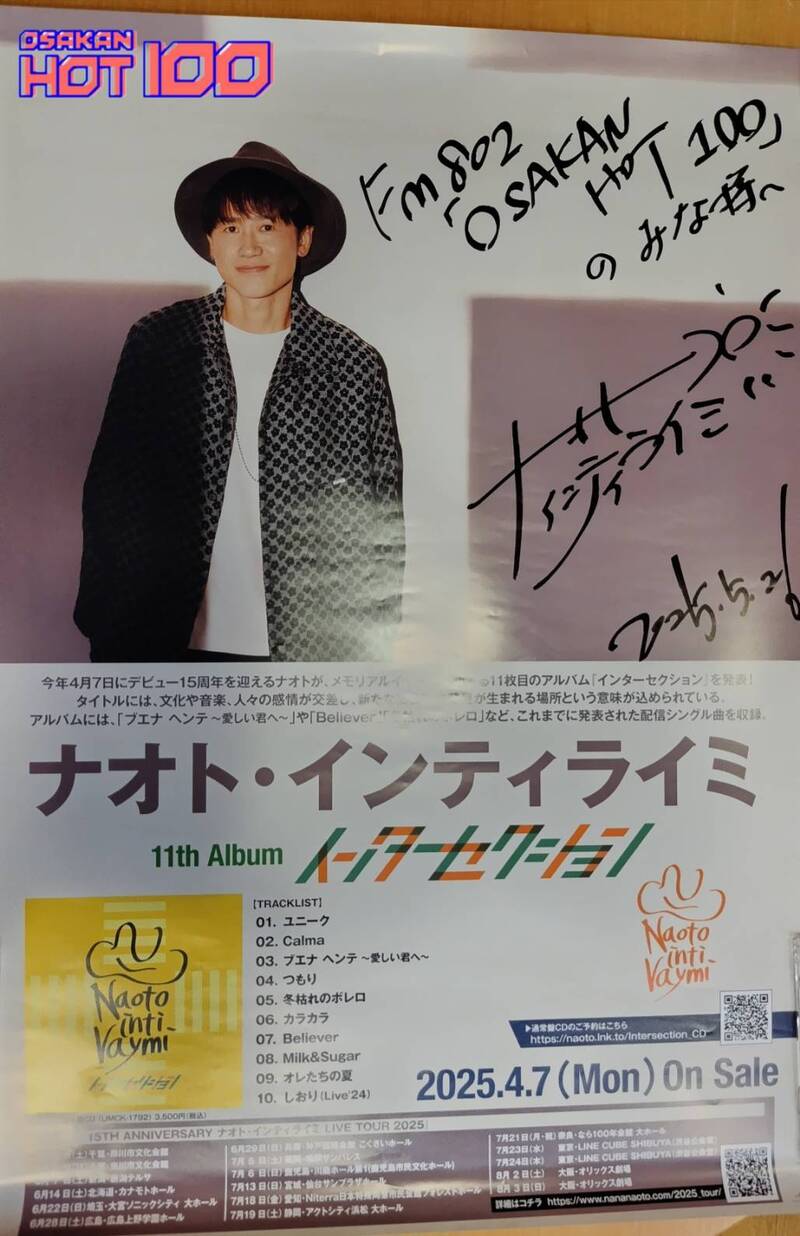 OSAKAN
HOT 100
FM802
「OSAKAN
HOT 100」
のみな様へ
ナオト
インティライミ
2025.5.21
今年4月7日にデビュー15周年を迎えるナオトが、メモリアルイ 11枚目のアルバム「インターセクション」を発表!
タイトルには、文化や音楽、人々の感情が交差し、新たな が生まれる場所という意味が込められている。
アルバムには、「ブエナ ヘンテ〜愛しい君へ〜」や「Believer」 ボレロ」など、これまでに発表された配信シングル曲を収録。
ナオト・インティライミ
11th Album インターセクション
【TRACKLIST】
01. ユニーク
02. Calma
03. ブエナ ヘンテ 〜愛しい君へ〜
04. つもり
05. 冬枯れのボレロ
06. カラカラ
07. Believer
08. Milk&Sugar
09. オレたちの夏
10. しおり(Live'24)
Naoto
inti
Raymi
インターセクション
Naoto
inti
Raymi
▶通常盤CDのご予約はこちら
https://naoto.lnk.to/Intersection_CD
2025.4.7(Mon) On Sale
(UMCK-1792) 3,500円(税込)
15TH ANNIVERSARY ナオト・インティライミ LIVE TOUR 2025
(土)千葉・市川市文化会館
6月14日(土)北海道・カナモトホール
6月22日(日)埼玉・大宮ソニックシティ 大ホール
6月28日(土)広島・広島上野学園ホール
6月29日(日)兵庫・神戸国際会館 こくさいホール
7月5日(土)福岡・福岡サンパレス
7月6日(日)鹿児島・川商ホール第1(鹿児島市民文化ホール)
7月13日(日)宮城・仙台サンプラザホール
7月18日(金)愛知・Niterra日本特殊陶業市民会館フォレストホール
7月19日(土)静岡・アクトシティ浜松 大ホール
7月21日(月・祝)奈良・なら100年会館 大ホール
7月23日(水)東京・LINE CUBE SHIBUYA(渋谷公会堂)
7月24日(木)東京・LINE CUBE SHIBUYA(渋谷公会堂)
8月2日(土)大阪・オリックス劇場
8月3日(日)大阪・オリックス劇場
詳細はコチラ https://www.nananaoto.com/2025_tour/